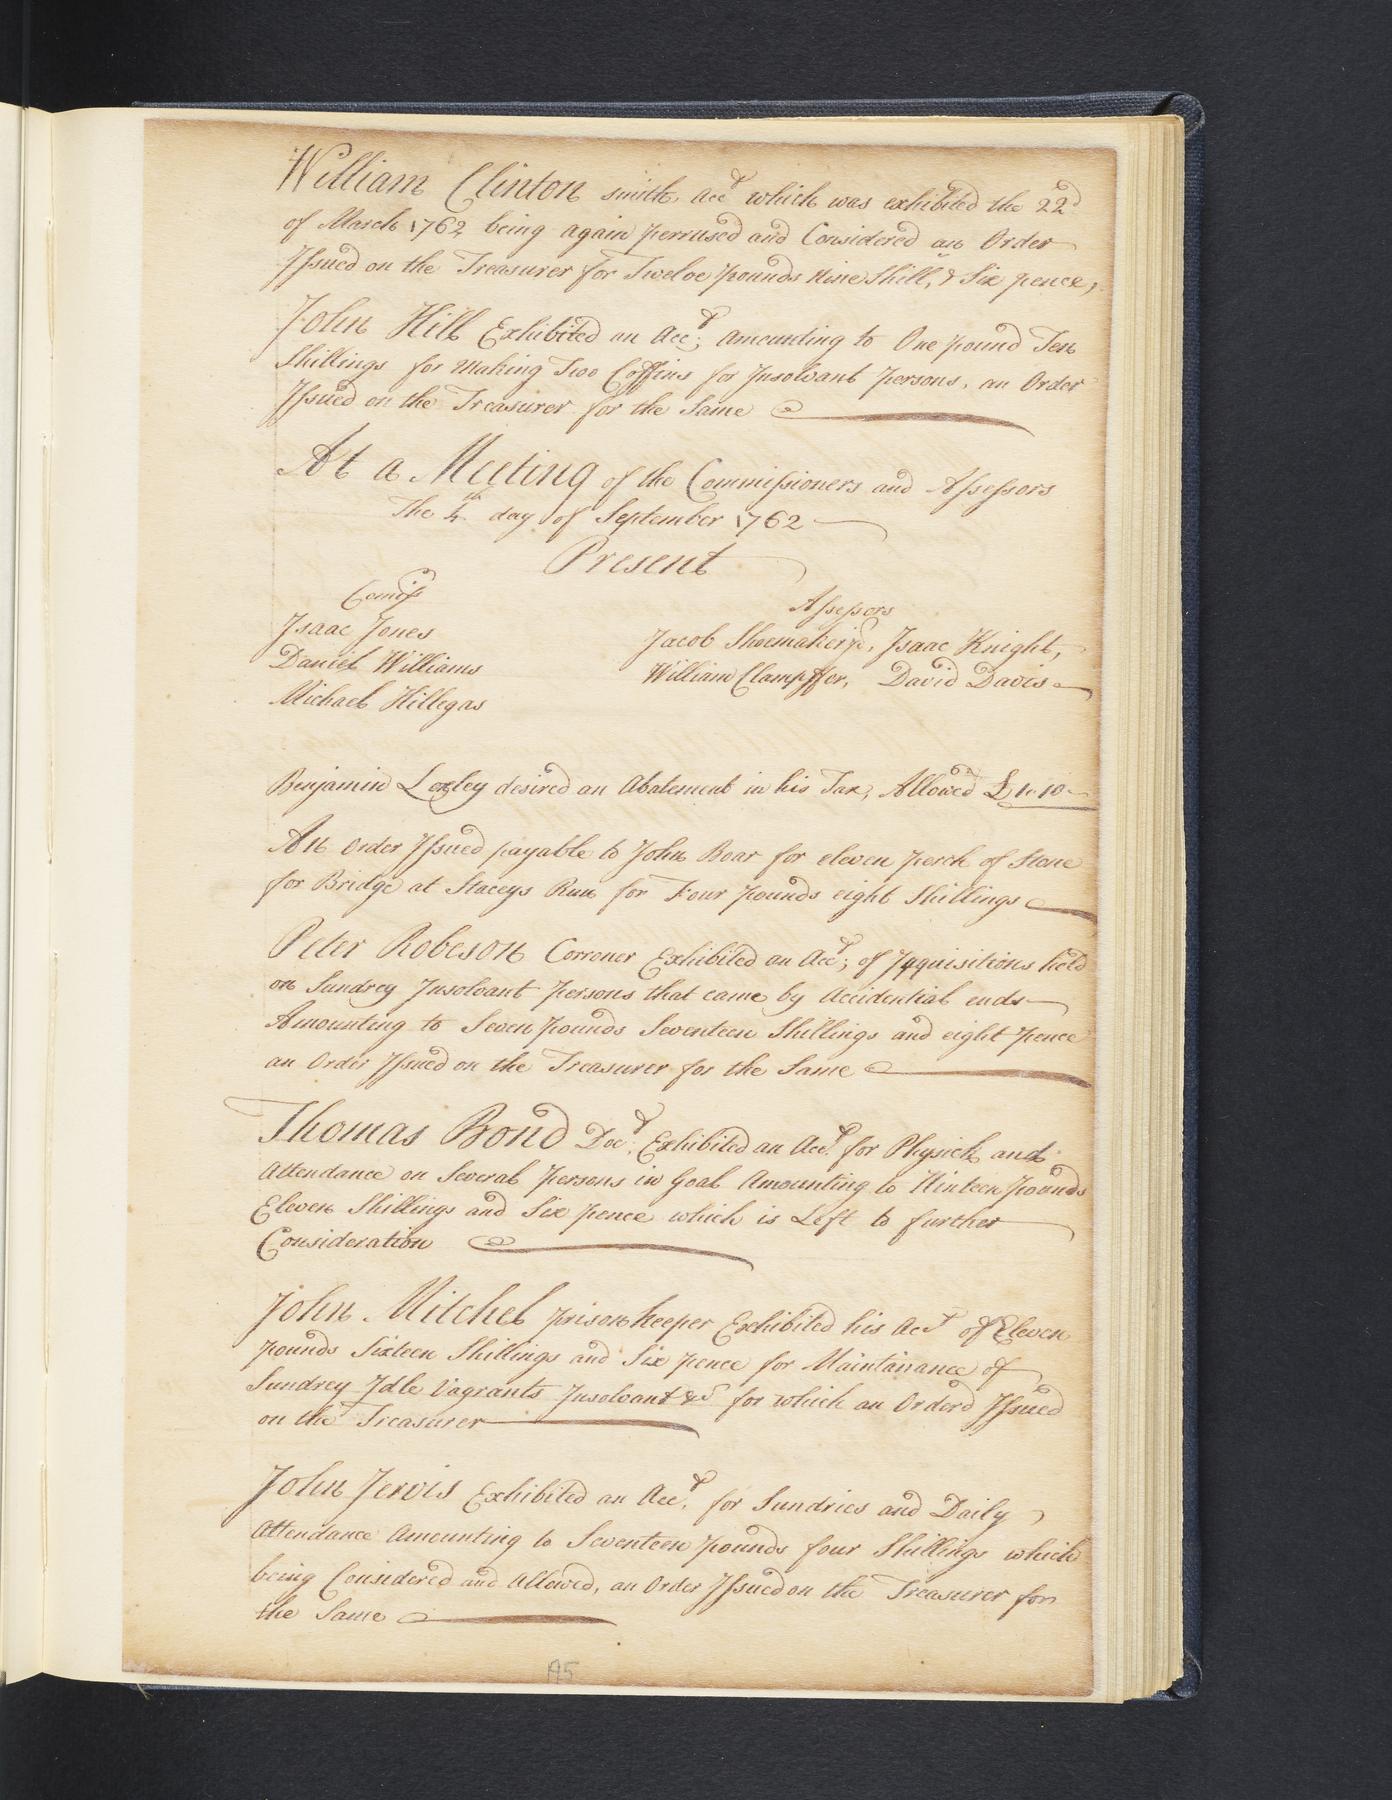 William Clinton smith, Acct which was exhibited the 22d
of March 1762 being again perrused and Considered an Order
Issued on the Treasurer for Twelve pounds Nine Shill, & Six pence,
John Hill Exhibited an Acct; Amounting to One pound Ten
Shillings for Making Two Coffins for Insolvant Persons, an Order
Issued on the Treasurer for the Same
At a Meeting of the Commissioners and Assessors
The 4th day of September 1762
Present
Comiss
Isaac Jones
Daniel Williams
Michael Hillegas
Assessors
Jacob Shoemaker, Isaac Knight,
William Clampffer, David Davis
Benjamin Loxley desired an Abatement in his Tax, Allowed £1.10
An Order Issued payable to John Boar for eleven perch of Stone
for Bridge at Staceys Run for Four pounds eight Shillings
Peter Robeson Corroner Exhibited an Acct; of Inquisitions held
on Sundrey Insolvant Persons that came by Accidential ends
Amounting to Seven pounds Seventeen Shillings and eight pence
an Order Issued on the Treasurer for the Same
Thomas Bond Doct. Exhibited an Acct. for Physick and
Attendance on Several Persons in Goal Amounting to Ninteen pounds
Eleven Shillings and Six pence which is Left to further
Consideration
John Mitchel prison keeper Exhibited his Acct of Eleven
pounds Sixteen Shillings and Six pence for Maintainance of
Sundrey Idle Vagrants Insolvant &c for which an Orderd Issued
on the Treasurer
John Jervis Exhibited an Acct, for Sundries and Daily
Attendance Amounting to Seventeen pounds four Shillings which
being Considered and Allowed, an Order Issued on the Treasurer for
the Same
A5